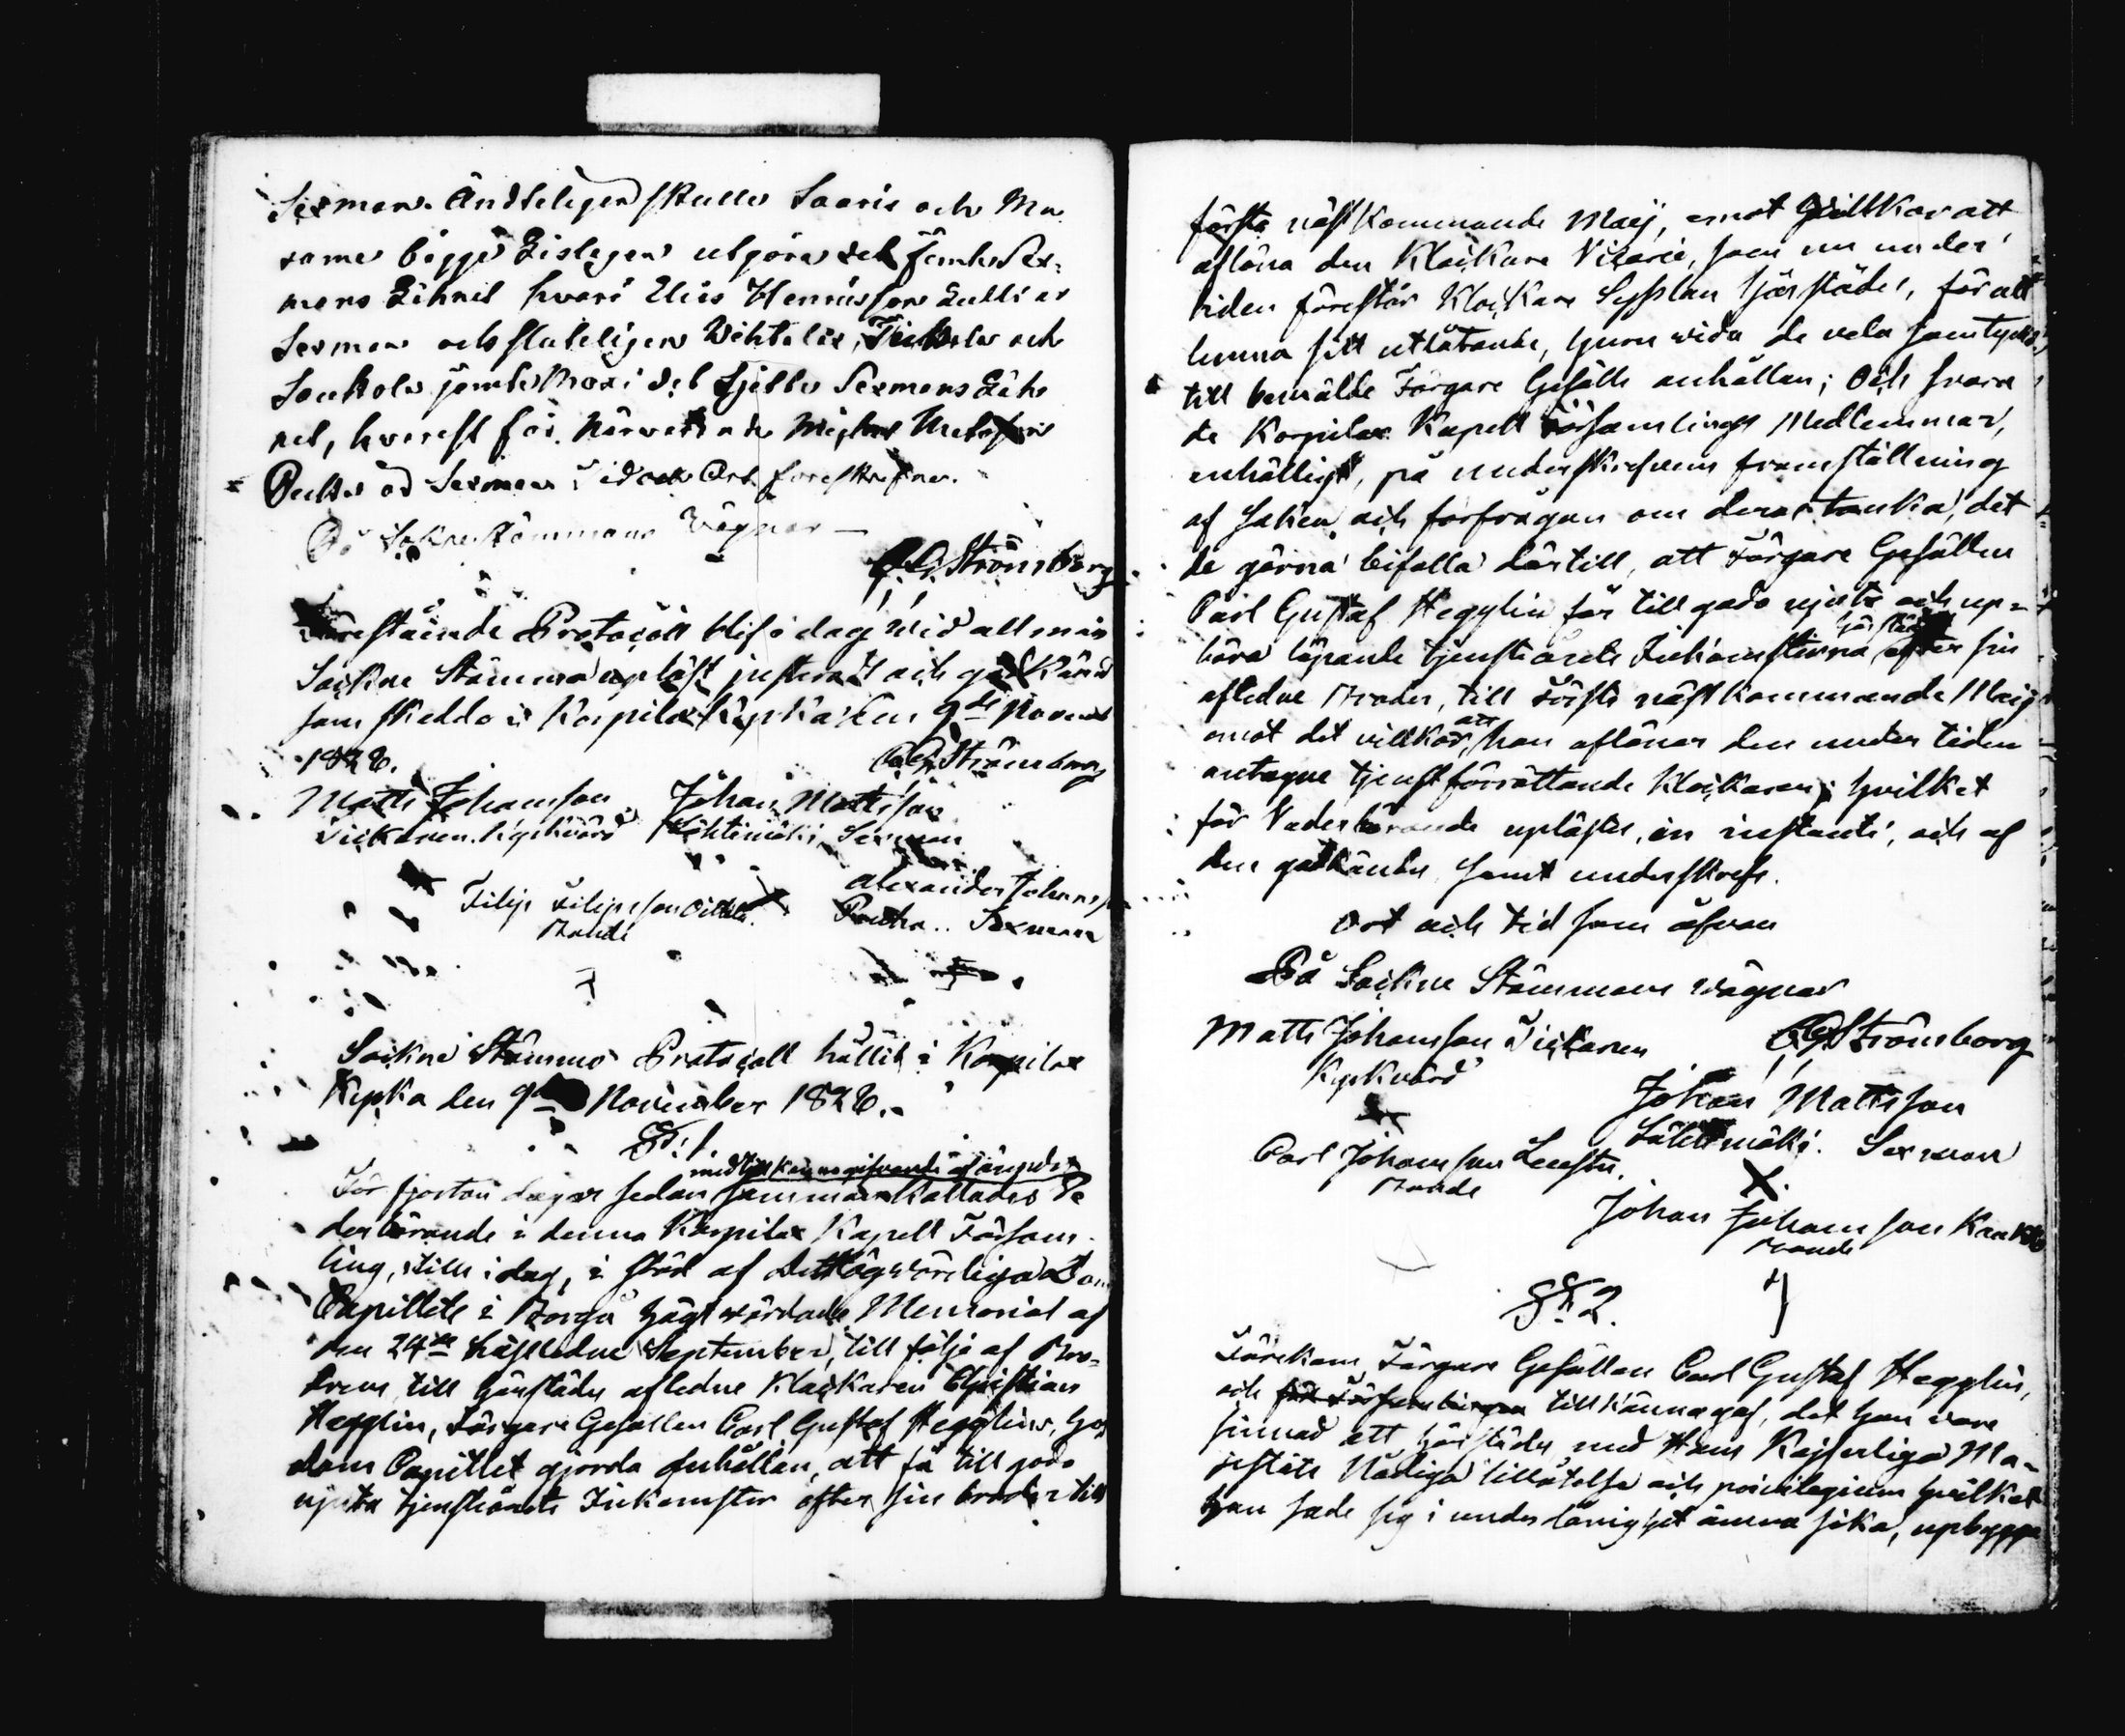 Sexman. Ändteligen skulle Saaris och Mu
rame bägge Lislagen utgöra det femte Sex-
mans Lähnet hvari Elias Henricsson Lulli är
Sexman och sluteligen Wihtalix, Tickala och
Saukola jemte Maxi det Sjette Sexmans Läh
net, hvarest för närvarande Michel Matsson
är Sexman, tid och Ort föreskrefne.
På Sokne Stämmans Vägnar —
C. G. Strömsborg
Förestående Protocoll blef i dag wid allmän
Sockne Stämma upläst justeradt och godkändt
som skedde i Korpilax Kyrka den 9de Novemb
1826.
C. G. Strömsborg
Matts Johansson Johan Mattsson
Tickanen. Kyrkvärd Lähtimäki, Sexman
Filip Filipsson Oittila. Alexander Johanss
Bonde Sexman
Sockne Stämmo Protocoll hållit i Korpilax
Kyrka den 9de November 1826.
§. 1.
med tillkännagifvande af ängudet
För fjorton dagar sedan sammankallades Ve
derbörande i denna Korpilax Kapell Församl
ling, till i dag, i stöd af Dett Högwördiga Dom
Capitlets i Borgå högtvördade Memorial af
den 24de sistledne September, till följe af Bro-
dren till härstädes afledne Klockaren Christian
Hegglin, Färgare Gesällen Carl Gustaf Hegglins, hos
dom Capitlet gjorda anhållan, att få till godo
njuta tjenstårets Inkomster efter sin broder till
första nästkommande Maij, emot vilkor att
aflöna den Klockare Vicarie, som nu under
tiden förestår Klockare Sysslan härstädes, för att
lemna sitt utlåtande, huruvida de vela samtycka
till bemälde Färgare Gesälls anhållan; Och svara
de Korpilax Kapell Församlings Medlemmar,
enhälligt, på underskrefvens framställning
af saken och förfrågan om deras tanka, det
de gärna bifalla därtill, att Färgare Gesällen
Carl Gustaf Hegglin får till godo njuta och up-
härstädes
bära löpande tjenstårets Inkomsterna efter sin
afledne Broder, till Förste nästkommande Maij
att
emot det villkor, han aflönar den under tiden
antagne tjenstförrättande Klockaren; hvilket
för Vederbörande uplästes, in instanti, och af
dem godkändes samt underskrefs.
Ort och tid som ofvan
På Sockne Stämmans wägnar
Matts Johansson Tickanen C. G. Strömsborg
Kyrkvärd
Johan Mattsson
Lähtimäki. Sexman
Carl Johansson Leustu.
Bonde
Johan Johansson
Bonde
§. 2.
Förekom Färgare Gesällen Carl Gustaf Hegglin,
och för Församlingen tillkännagaf, det han vore
sinnad att härstädes med Hans Kejserliga Ma-
jestäts Nådiga tillåtelse och privilegium hvilket
han sade sig i underdånighet ämna söka, upbygga